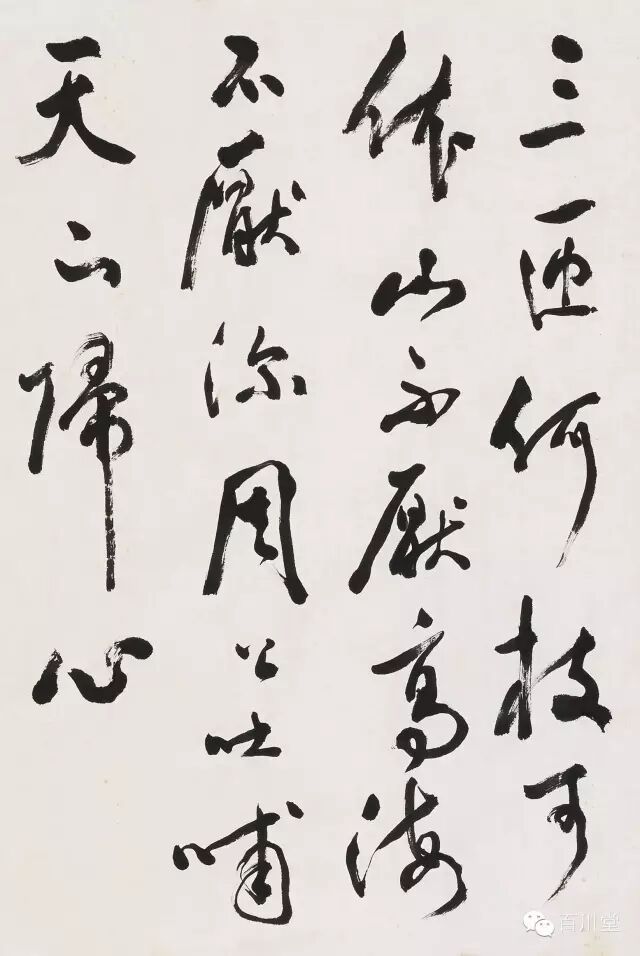 三匝何枝可
依山不厭高海
不厭深周公吐哺
天下歸心
百川堂